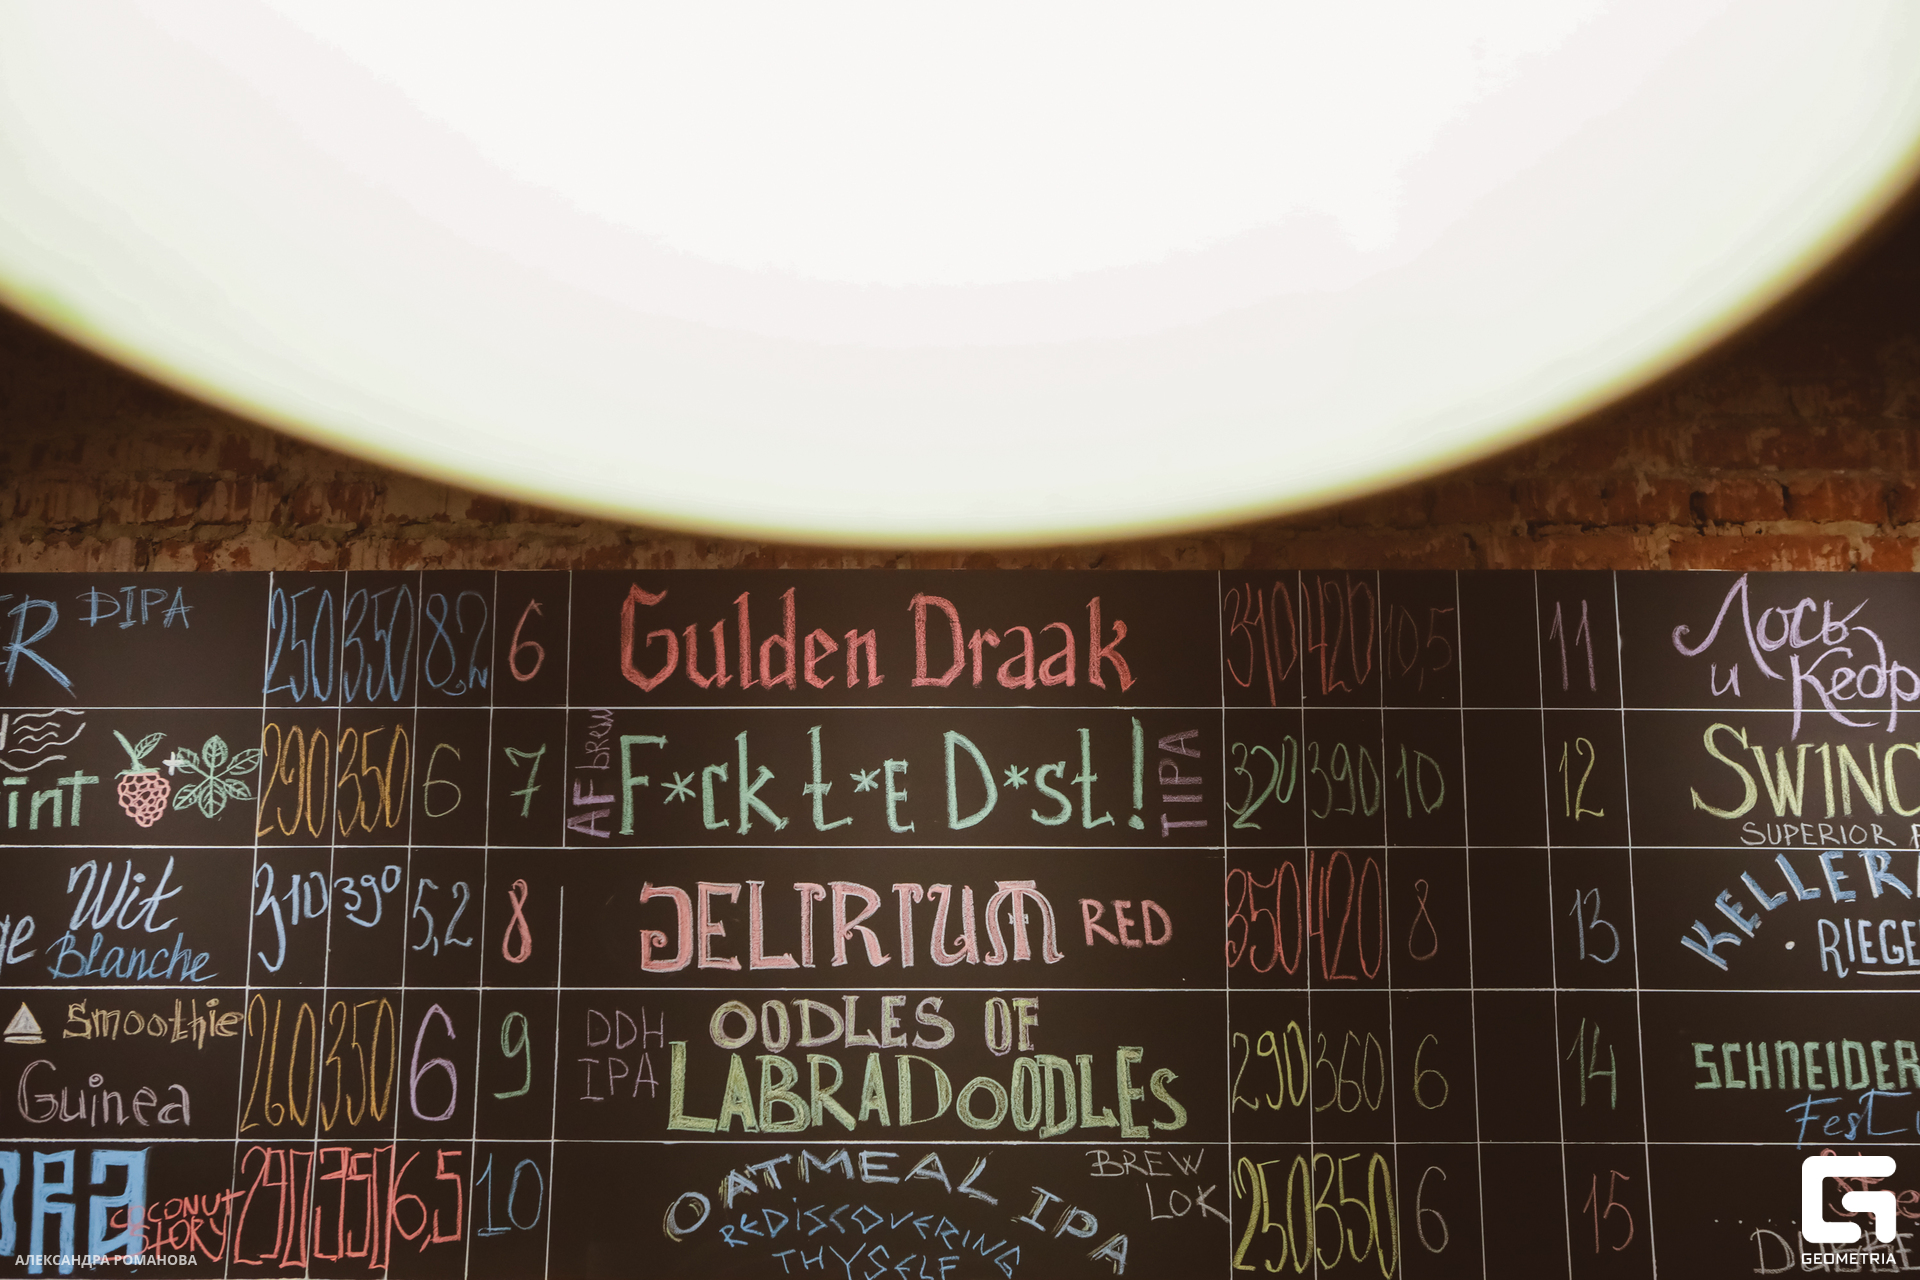 DIPA 250 350 8,2 6 Gulden Draak 340 420 10,5 11 Лось
и Кедр
290 350 6 7 AF brew F*ck t*e D*st! TIPA 320 390 10 12
SUPERIOR
Wit 310 390 5,2 8 DELIRIUM RED 350 420 8 13
Blanche
Smoothie 260 350 6 9 DDH IPA OODLES OF 290 360 6 14 SCHNEIDER
Guinea LABRADOODLES Fest
COCONUT STORY 290 350 6,5 10 OATMEAL IPA BREW LOK 250 350 6 15
REDISCOVERING
THYSELF
АЛЕКСАНДРА РОМАНОВА
GEOMETRIA